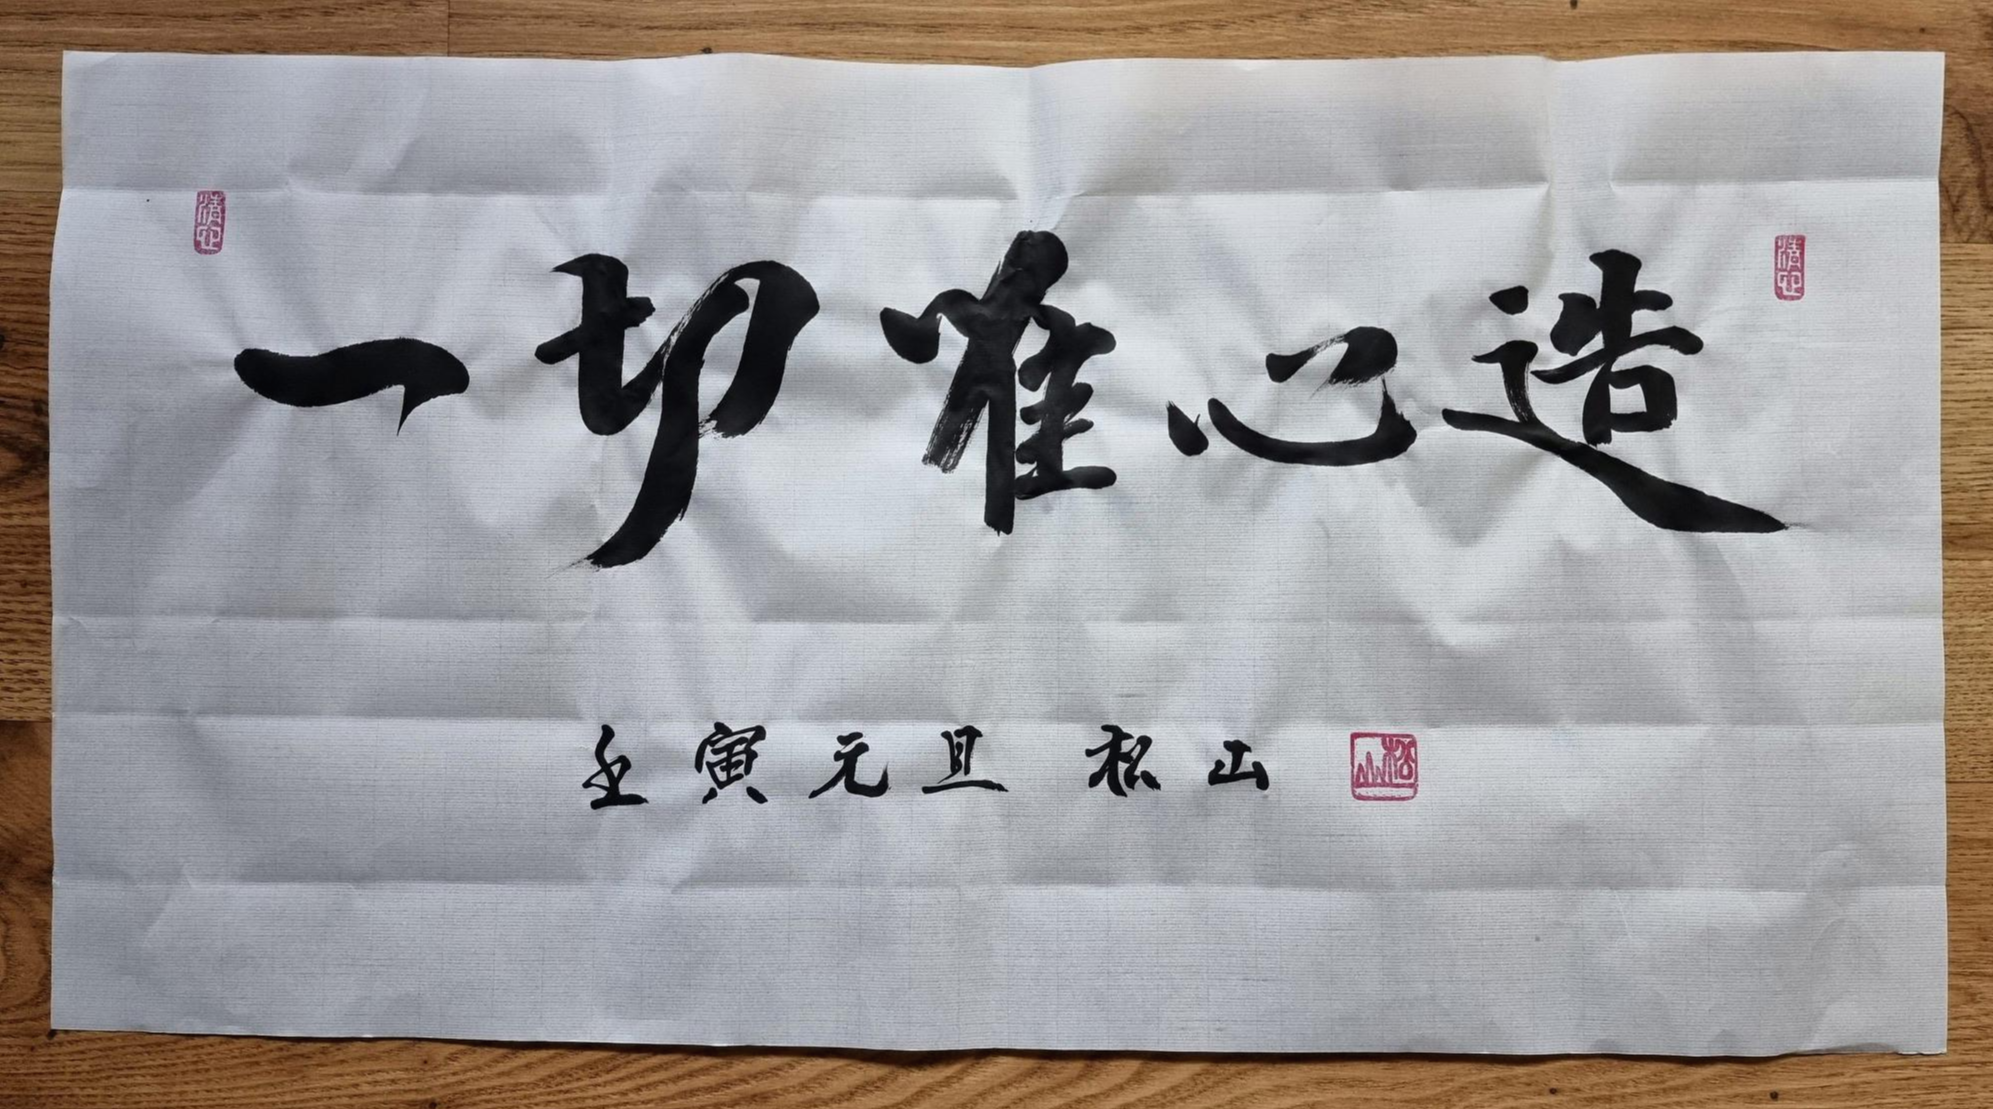 一切唯心造
壬寅元旦 松山
松山